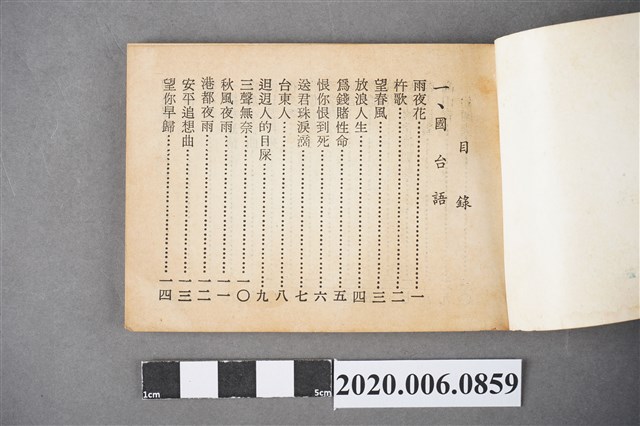 目錄
一、國台語
雨夜花……一
杵歌……二
望春風……三
放浪人生……四
為錢賭性命……五
恨你恨到死……六
送君珠淚滴……七
台東人……八
迌迌人的目屎……九
三聲無奈……一〇
秋風夜雨……一一
港都夜雨……一二
安平追想曲……一三
望你早歸……一四
1cm
5cm
2020.006.0859